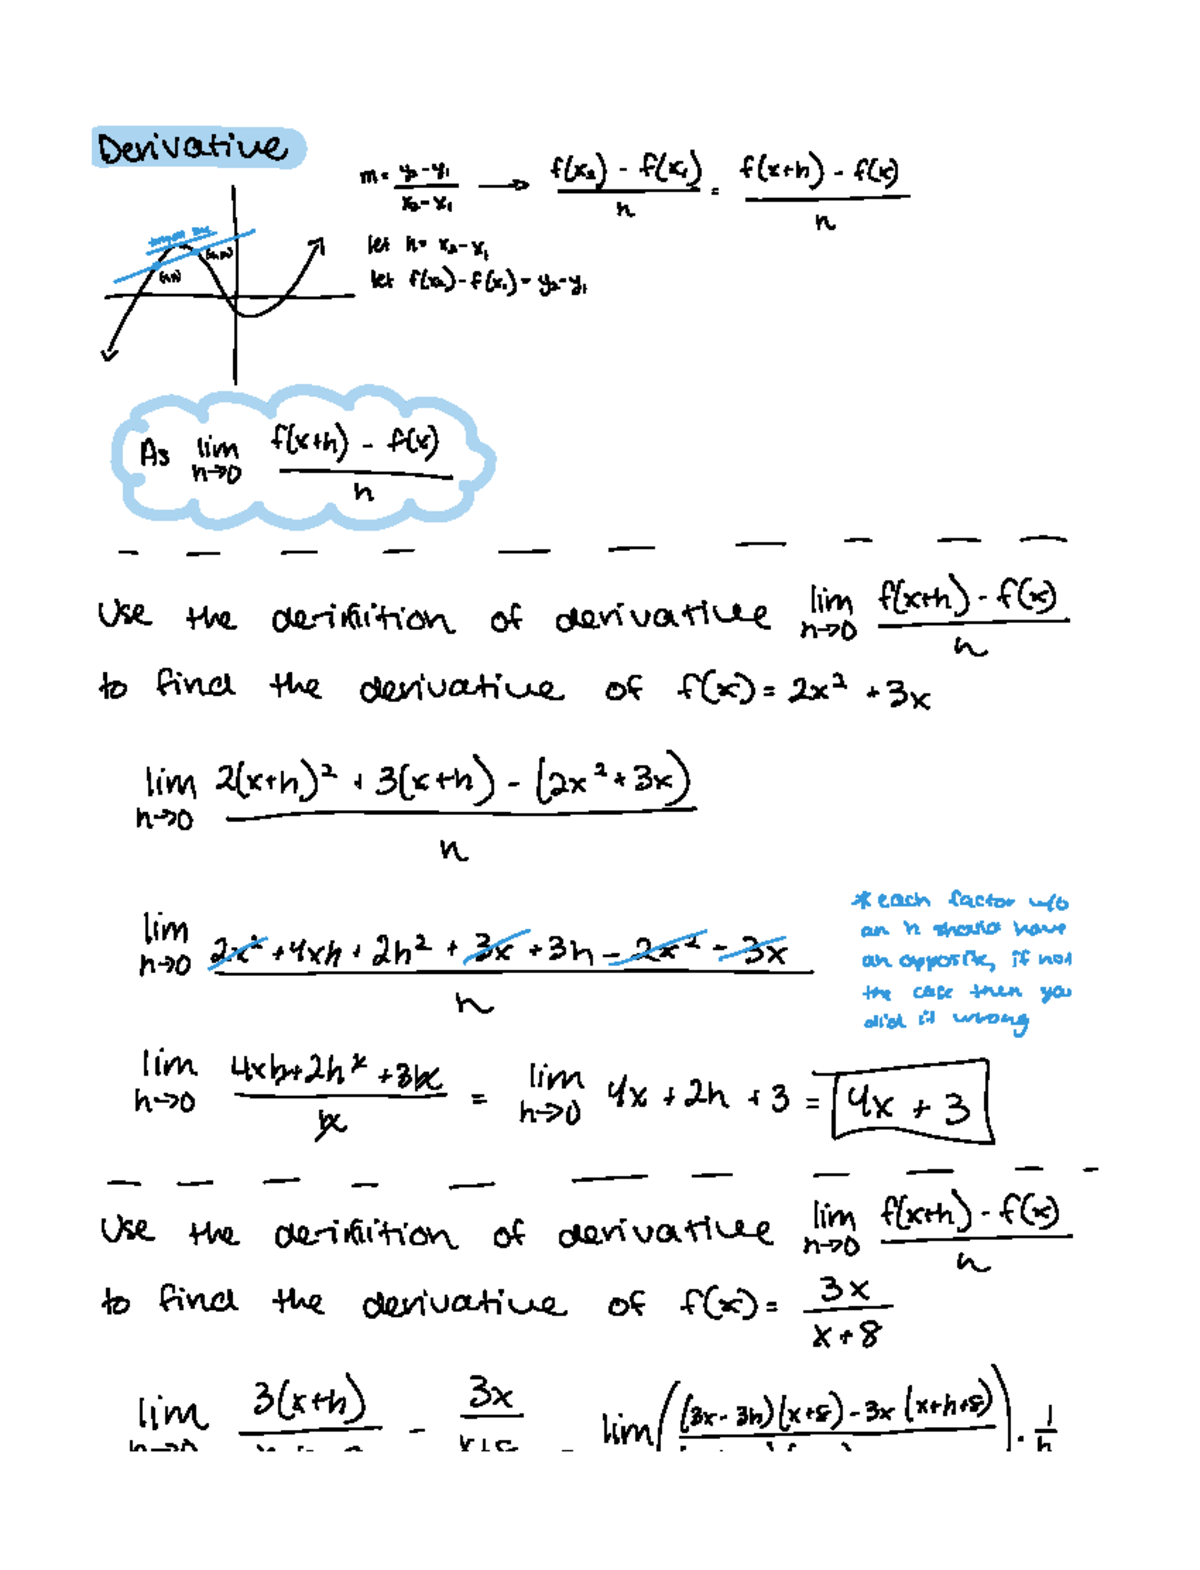 Derivative
m = y₂-y₁ / x₂-x₁ → f(x₂) - f(x₁) / h = f(x+h) - f(x) / h
let h = x₂-x₁
let f(x₂)-f(x₁) = y₂-y₁
As lim h→0 f(x+h) - f(x) / h
Use the definition of derivative lim h→0 f(x+h) - f(x) / h
to find the derivative of f(x) = 2x² + 3x
lim h→0 2(x+h)² + 3(x+h) - (2x² + 3x) / h
* each factor w/o
an h should have
an opposite, if not
the case then you
did it wrong
lim h→0 2x² + 4xh + 2h² + 3x + 3h - 2x² - 3x / h
lim h→0 4xh + 2h² + 3h / h = lim h→0 4x + 2h + 3 = 4x + 3
Use the definition of derivative lim h→0 f(x+h) - f(x) / h
to find the derivative of f(x) = 3x / x + 8
lim 3(x+h) - 3x = lim ( (3x - 3h)(x+8) - 3x (x+h+8) ) · 1/h